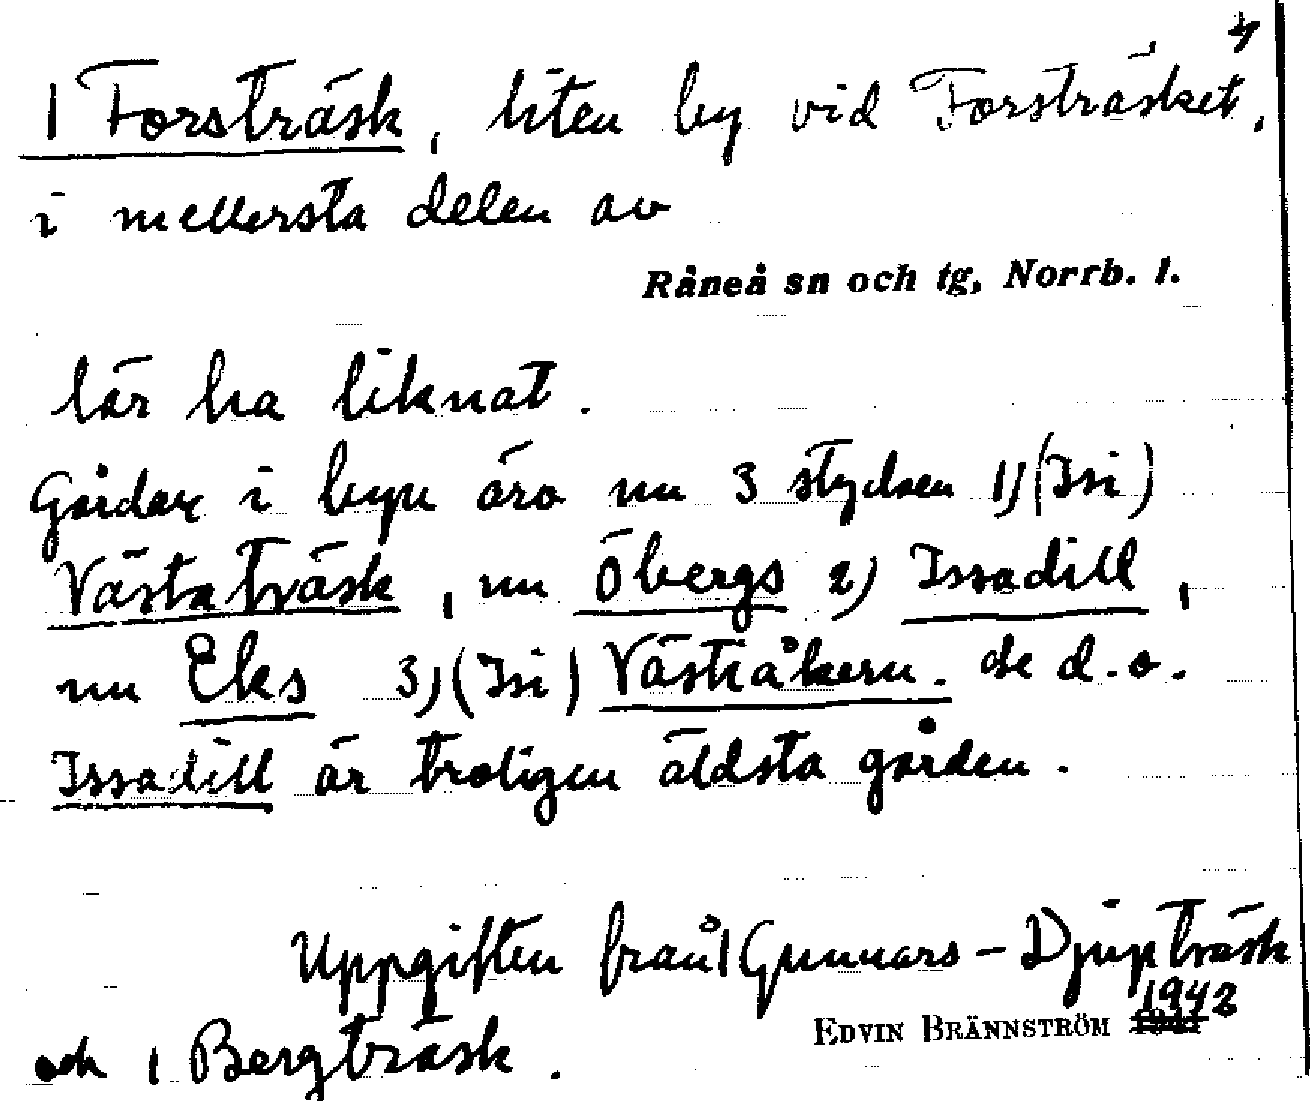 4
| Forsträsk, liten by vid Forsträsket,
i mellersta delen av
Råneå sn och tg, Norrb. l.
lär ha liknat.
Gårdar i byn äro nu 3 stycken 1) (Isi)
Västaträsk, nu Öbergs 2) Issadill,
nu Eks 3) (Isi) Västiåkern. de d.o.
Issadill är troligen äldsta gården.
Uppgiften från | Gunnars-Djupträsk
1942
EDVIN BRÄNNSTRÖM
och | Bergträsk.